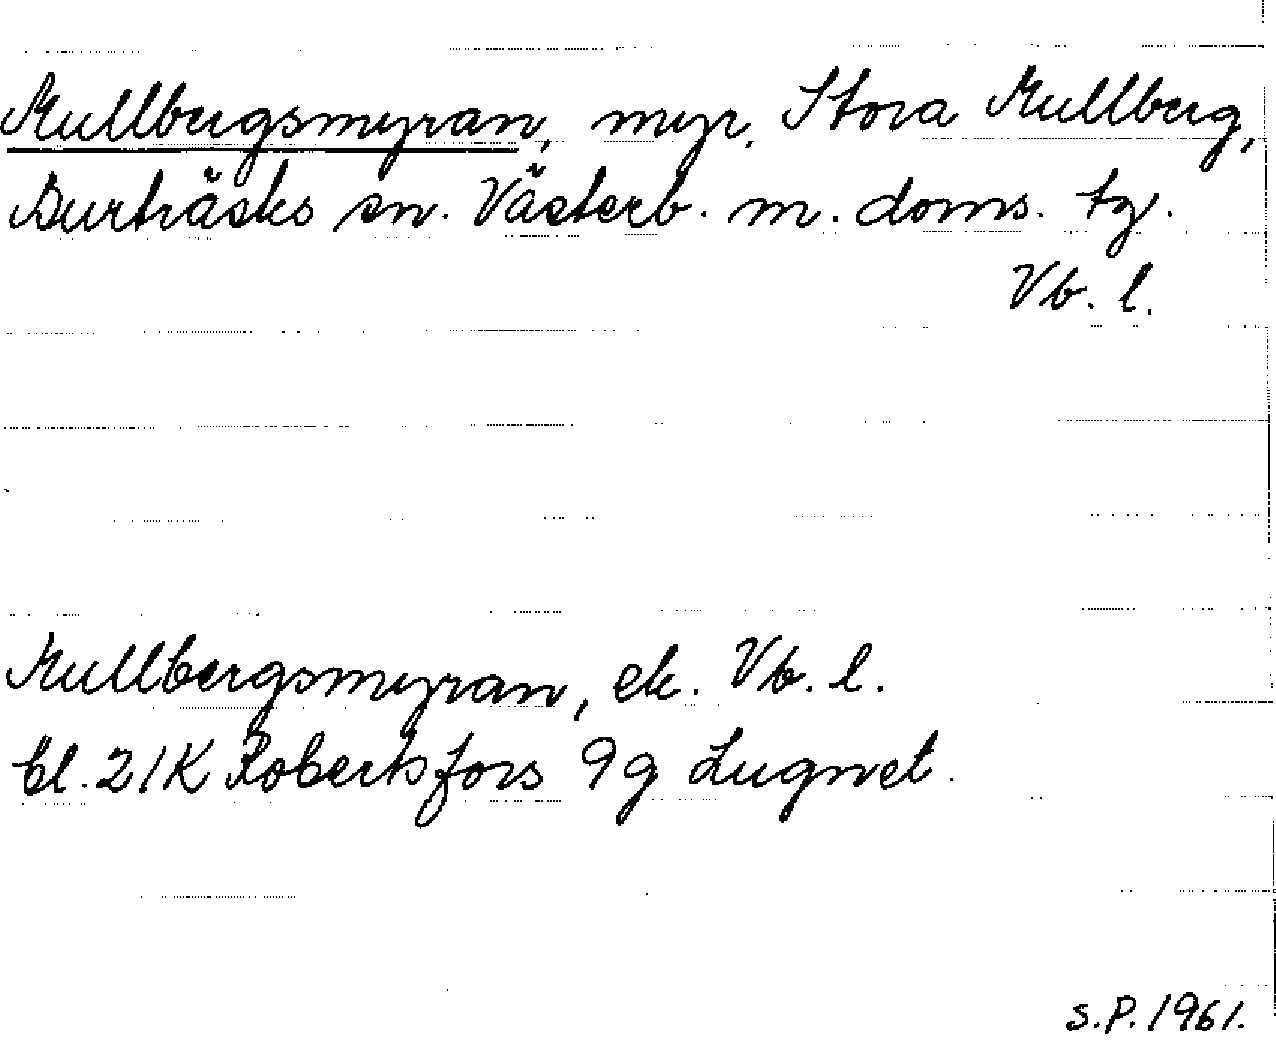 Mullbergsmyran, myr, Stora Mullberg,
Burträsks sn. Västerb. m. doms. tg.
Vb. l.
Mullbergsmyran, ek. Vb. l.
bl. 21K Robertsfors 9g Lugnet.
S.P. 1961.